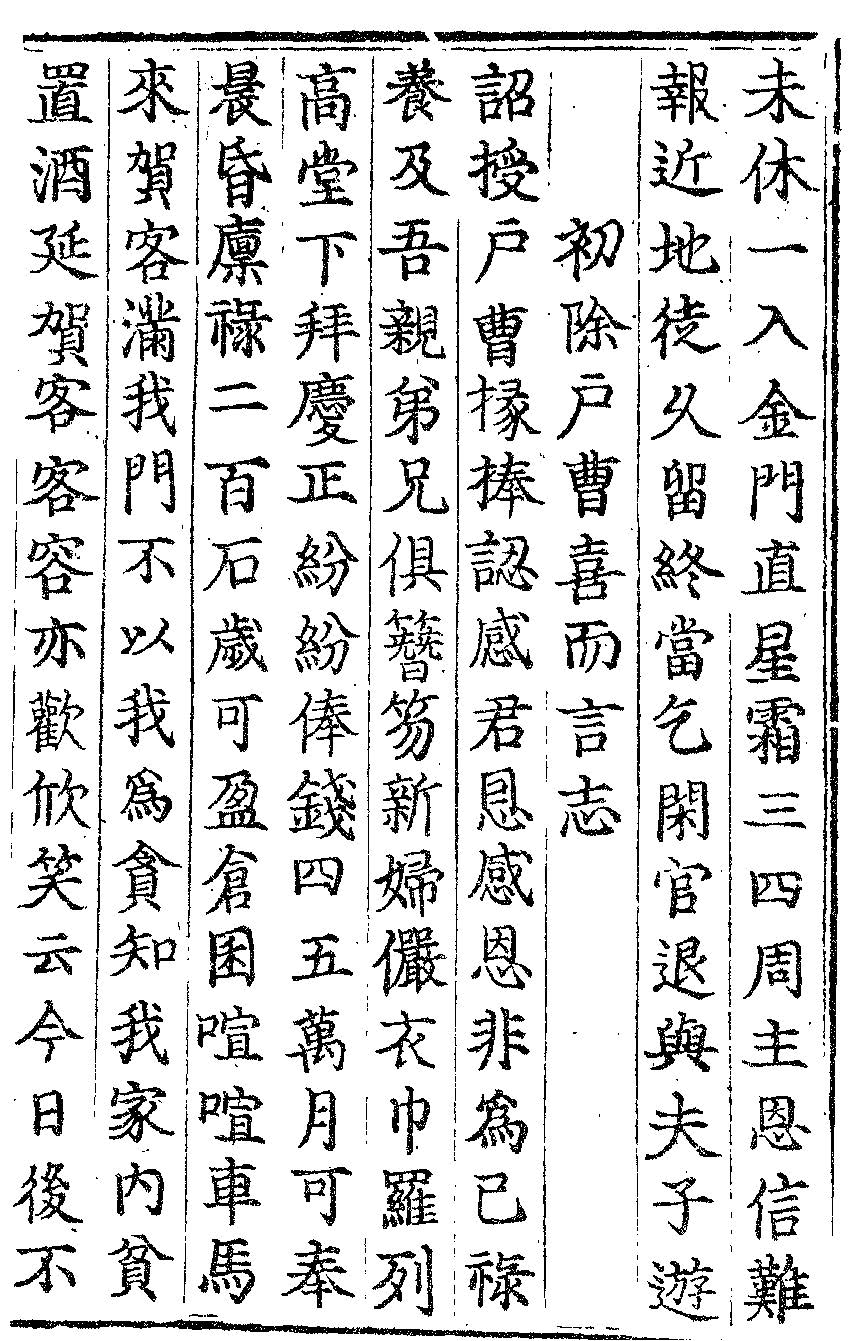 未休一入金門直星霜三四周主恩信難
報近地徒久留終當乞閑官退與夫子遊
初除戶曹喜而言志
詔授戶曹掾捧認感君恩感恩非爲已祿
養及吾親弟兄俱簪笏新婦儼衣巾羅列
高堂下拜慶正紛紛俸錢四五萬月可奉
晨昏廩祿二百石歲可盈倉困喧喧車馬
來賀客滿我門不以我爲貪知我家内貧
置酒延賀客客容亦歡欣笑云今日後不